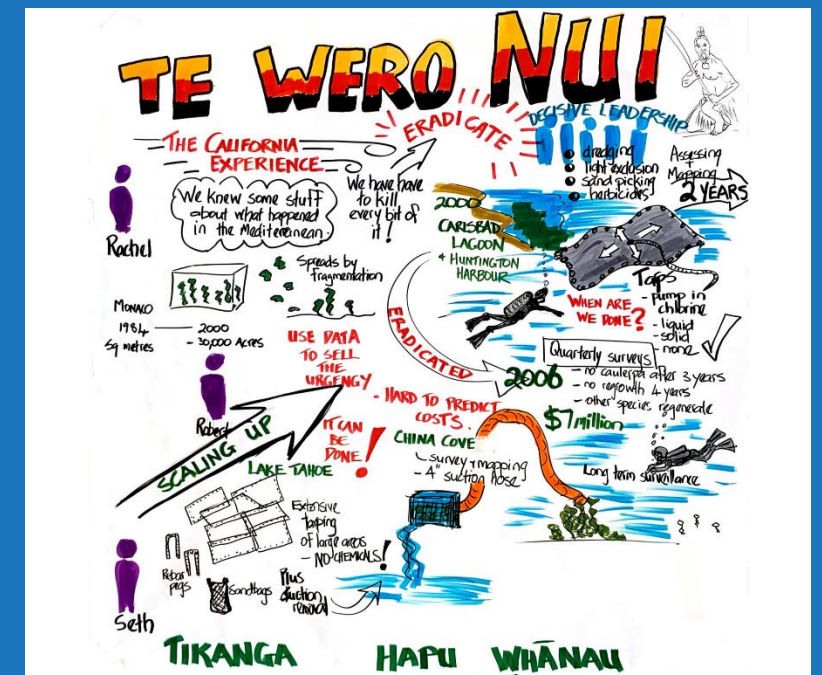 TE WERO NUI
THE CALIFORNIA
EXPERIENCE
ERADICATE
DECISIVE LEADERSHIP
dredging
light exclusion
sand picking
herbicides
Assessing
+
Mapping
2 YEARS
Rachel
We knew some stuff
about what happened
in the Mediterranean.
We have have
to kill
every bit of
it!
2000
CARLSBAD
LAGOON
+ HUNTINGTON
HARBOUR
Spreads by
fragmentation
MONACO
1984 — 2000
Sq metres - 30,000 ACRES
USE DATA
TO SELL
THE
URGENCY
ERADICATED
WHEN ARE
WE DONE?
Taps
- pump in
chlorine
- liquid
- solid
- none
Quarterly surveys
2006
- no caulerpa after 3 years
- no regrowth 4 years
- other species regenerate
$7 million
Long term surveillance
Robert
SCALING UP
IT CAN
BE
DONE!
- HARD TO PREDICT
COSTS.
CHINA COVE
survey + mapping
- 4" suction hose
LAKE TAHOE
Extensive
tarping
of large areas
- NO CHEMICALS!
Rebar
pegs
Sandbags
Plus
suction
removal
Seth
TIKANGA HAPU WHĀNAU